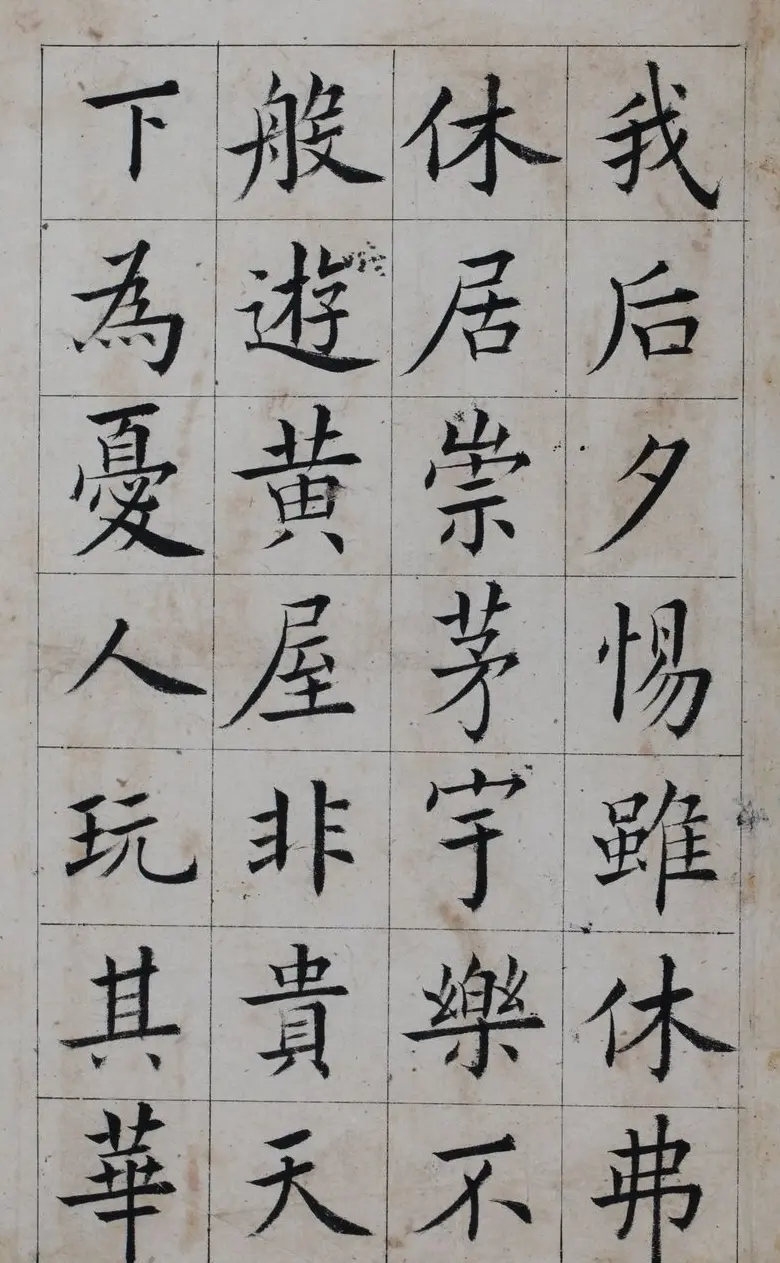 我后夕惕雖休弗
休居崇茅宇樂不
般遊黄屋非貴天
下為憂人玩其華